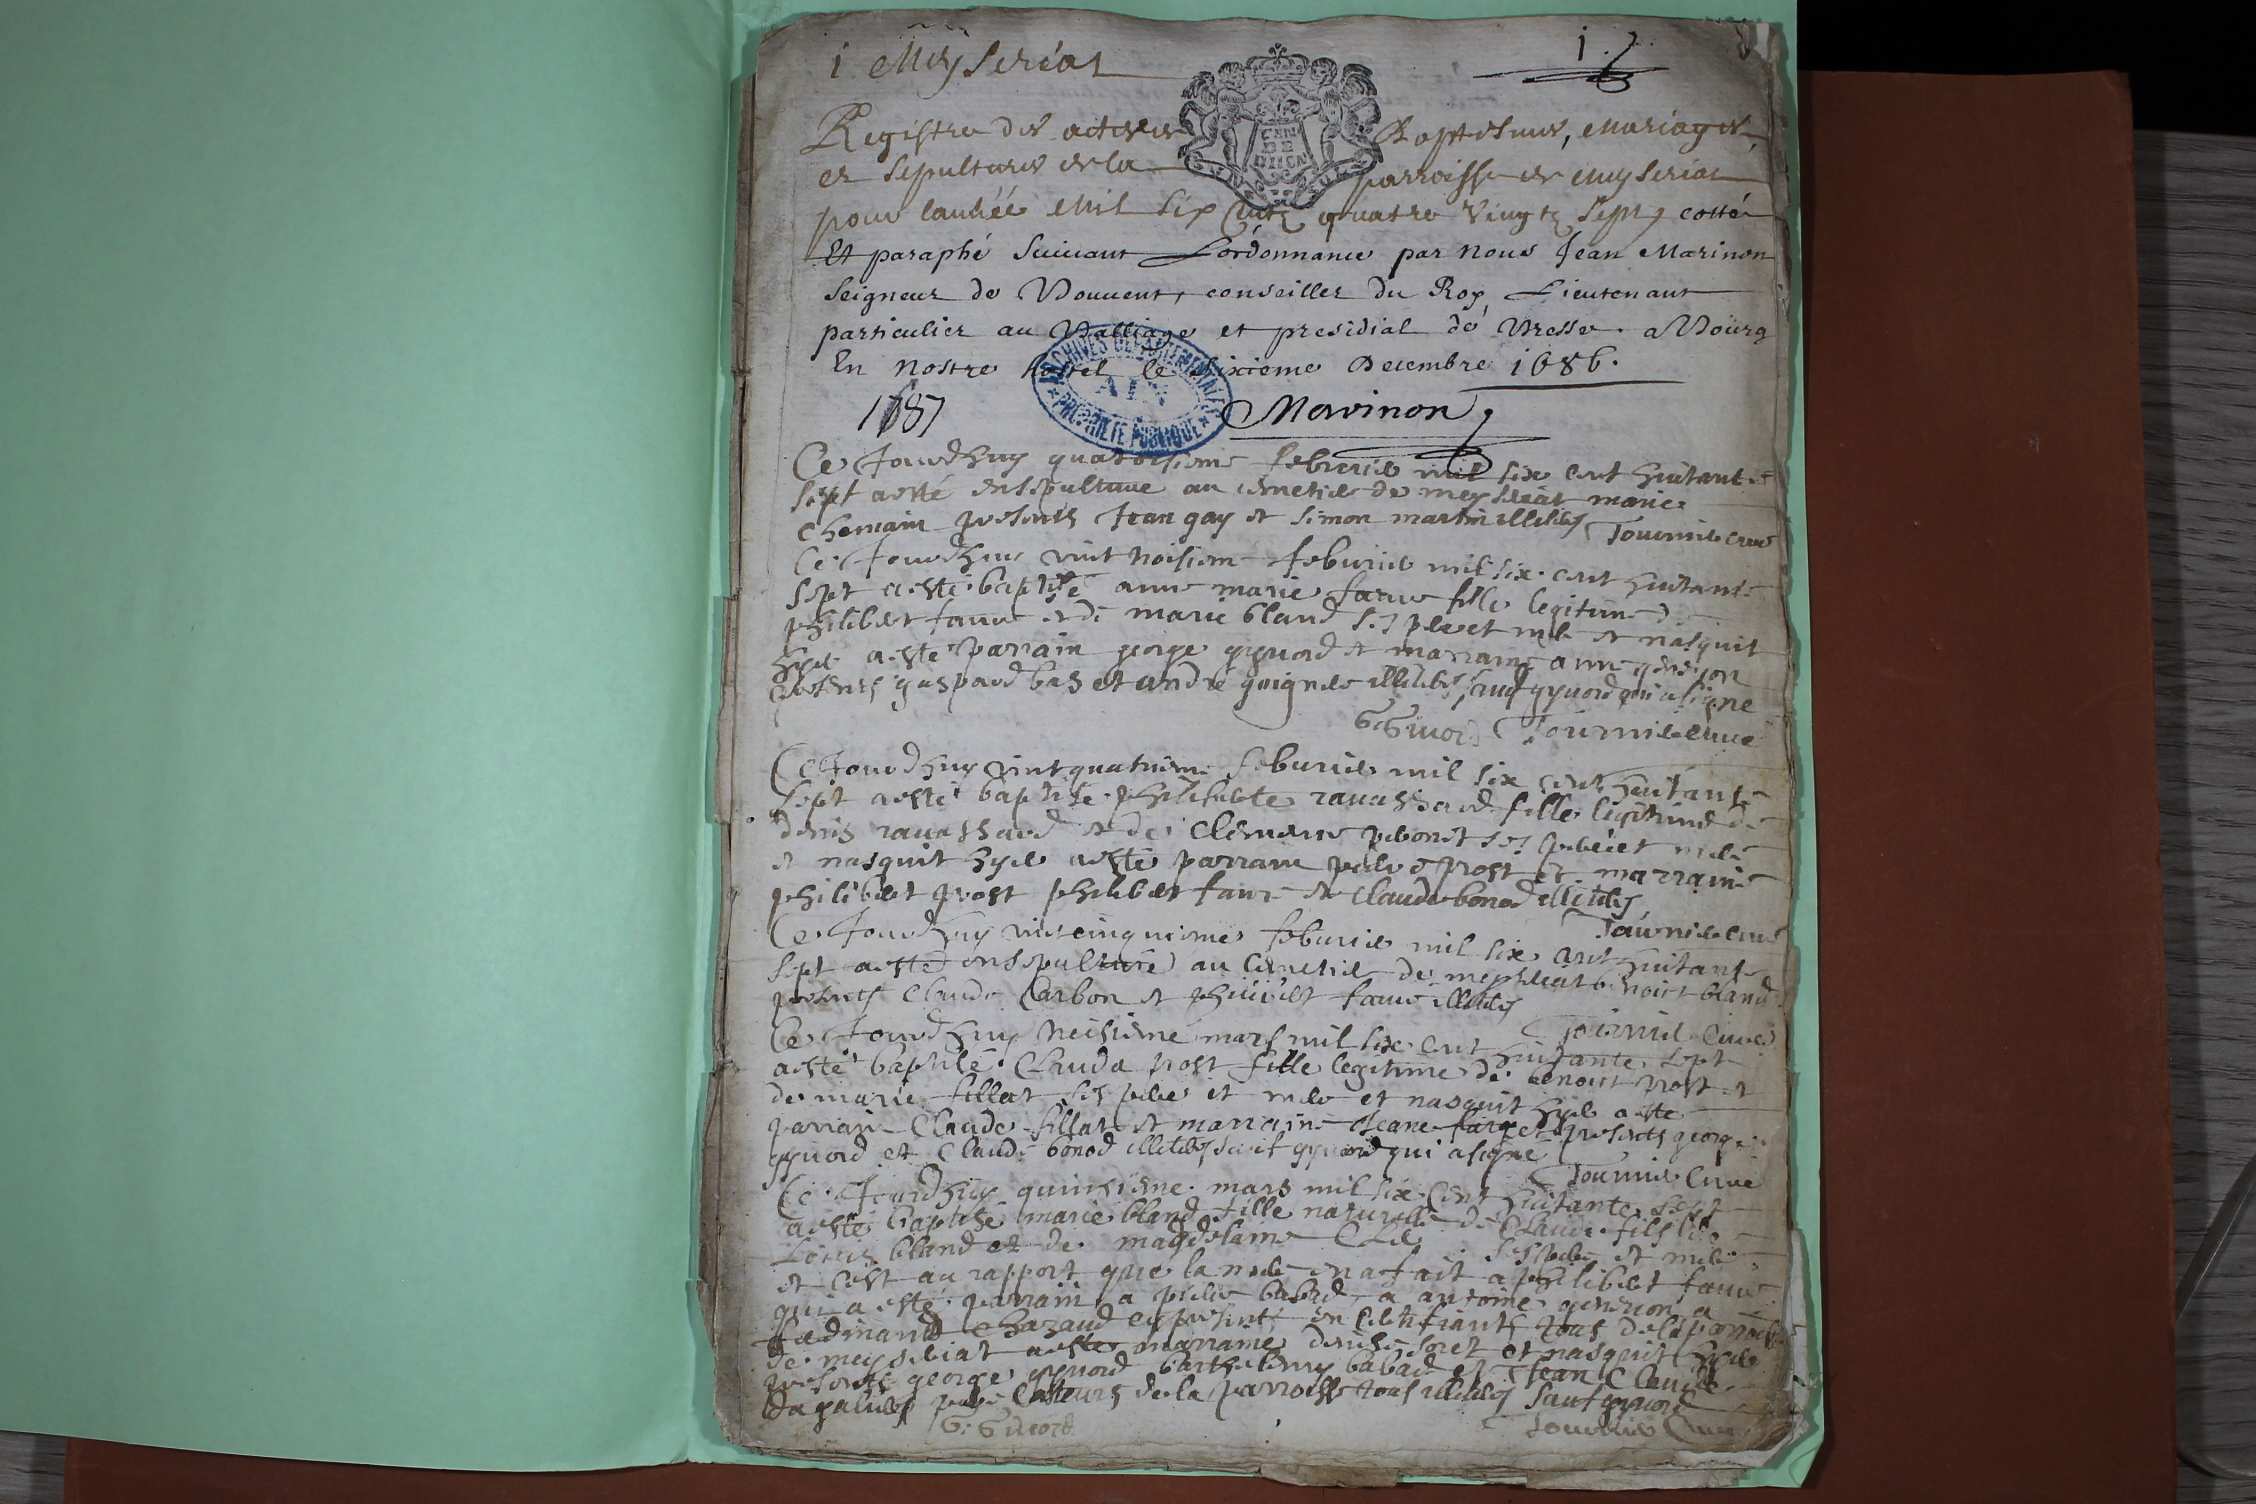 1 Meyseriat
1.
Registre des actes de Baptesmes, Mariages
et Sepultures de la parroisse de Meyseriat
pour lannéé Mil six Cents quatre vingts sept cotté
Et paraphé suivant Lordonnance par Nous Jean Marinon
seigneur de conseiller du Roy Lieutenant
particulier au Balliage et presidial de Bresse a Bourg
En Nostre hostel le sixieme Decembre 1686.
1687
Marinon
ARCHIVES DEPARTEMENTALES
AIN
PROPRIETE PUBLIQUE
Ce Jourdhuy quatorsieme febvrier mil six cent huitante
sept a esté ensepulture au cimetier de meyseriat marie
Chemain presents Jean gay et simon martin illiteres Tournier cure
Ce Jourdhuy vint troisiem feburier mil six cent huitante
sept a esté baptisé anne marie faure fille legitime de
philibert faure et de marie bland ses pere et mere et nasquit
hyer a esté parrain george gyuord et marraine anne
presents gaspard bas et andre illiteres sauf gyuord qui a signe
G Giuord Tournier cure
Ce Jourdhuy vint quatrieme feburier mil six cent huitante
sept a esté baptisé philiberte ravassard fille legitime de
denis ravassard et de Clemence ses pere et mere
et nasquit hyer a esté parrain pierre prost et marraine
philiberte prost philibert faure et Claude bonod illiteres
Tournier cure
Ce Jourdhuy vint cinquieme feburier mil six cent huitante
sept a esté ensepulturé au cimetier de meyseriat benoist bland
presents Claude Carbon et philibert faure illiteres
Tournier Cure
Ce Jourdhuy treisieme mars mil six cent huitante sept
a esté baptisé Clauda prost fille legitime de benoist prost et
de marie fillat ses pere et mere et nasquit hyer a este
parrain Claude fillat et marraine Jeane farge presents george
gyuord et Claude bonod illiteres sauf gyuord qui a signe
Tournier Cure
Ce Jourdhuy quinsieme mars mil six cent huitante sept
a esté baptisé marie bland fille naturelle de Claude fils de
Louis bland et de magdelaine ses pere et mere
et cest au rapport que la mere en a fait a philibert faure
qui a esté parrain a pierre babad a antoine a
ferdinand Chazaud en presents tous de la parroisse
de meyseriat a esté marraine denise et nasquit hyer
presents george gyuord barthelemy babad et Jean Claude
de la parroisse tous illiteres sauf gyuord
G. Giuord Tournier Cure